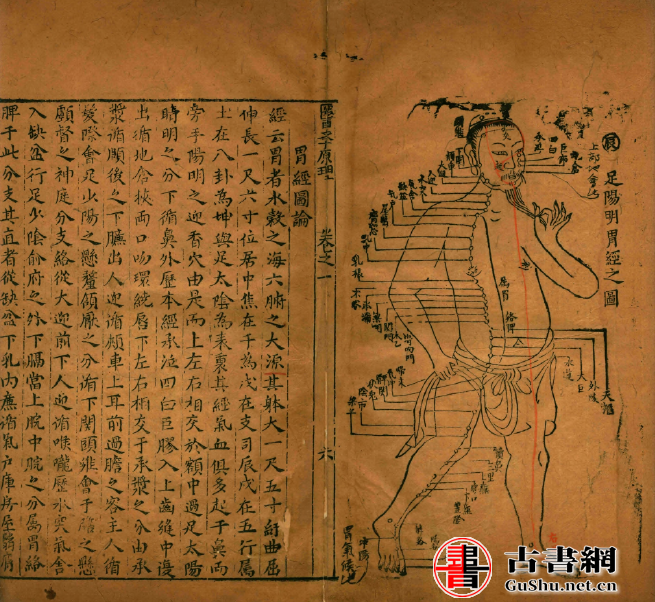 足陽明胃經之圖
四白
巨膠
地倉
乳中
乳根
不容
承滿
梁門
関門
屬胃
絡脾
水道
大巨
外陵
天樞
陰市
梁丘
三里
胃氣
醫學原理 卷之一 六
胃經圖論
經云胃者水穀之海六腑之大源其躰大一尺五寸紆曲屈
伸長二尺六寸位居中焦在干為戊在支司辰戌在五行屬
土在八卦為坤與足太陰為表裏其經氣血俱多起于鼻兩
旁手陽明之迎香穴由是而上左右相交於頞中過足太陽
睛明之分下循鼻外歷本經承泣四白巨膠入上齒縫中復
出循地倉挾兩口吻環繞唇下左右相交于承漿之分由承
漿循頤後之下臁出人迎循頰車上耳前過膽之客主人循
髮際會足少陽之懸釐頷厭之分循下関頭維會于膽之懸
顱督之神庭分支絡從大迎前下人迎循喉嚨歷水突氣舍
入缺盆行足少陰俞府之外下膈當上脘中脘之分屬胃絡
脾于此分支其直者從缺盆下乳內廉循氣户庫房屋翳膺
書
古書網
GuShu.net.cn